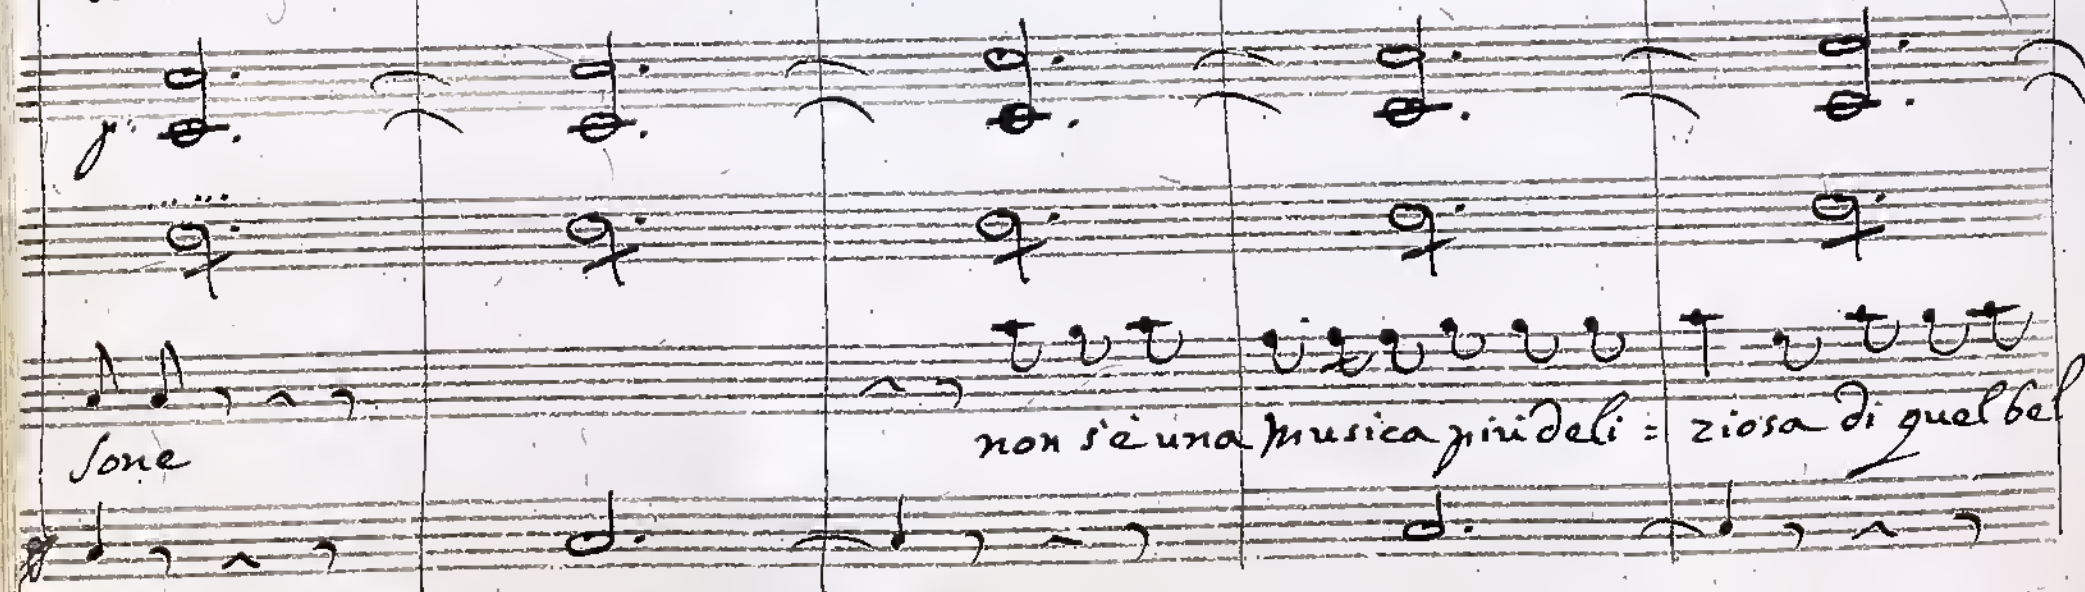 p:
non s'è una musica più deli = ziosa di quel bel
sone